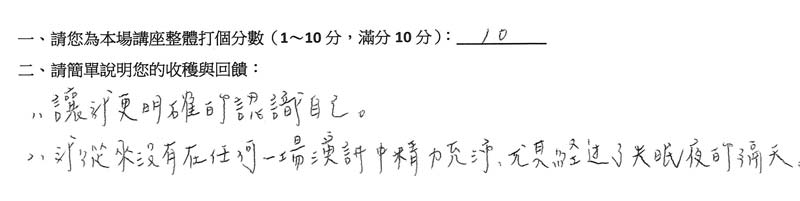 一、請您為本場講座整體打個分數（1～10 分，滿分 10 分）：10
二、請簡單說明您的收穫與回饋：
1、讓我更明確的認識自己。
2、我從來沒有在任何一場演講中精力充沛、尤其經过了失眠夜的隔天、